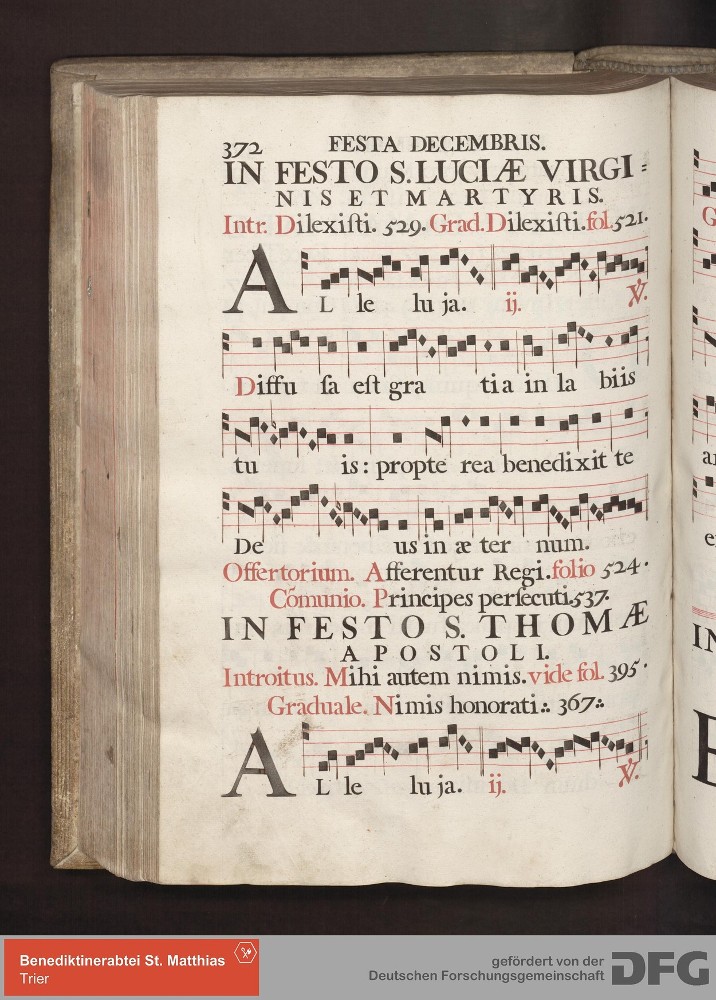 372 FESTA DECEMBRIS.
IN FESTO S. LUCIÆ VIRGI=
NIS ET MARTYRIS.
Intr. Dilexiſti. 529. Grad. Dilexiſti. fol. 521.
AL le lu ja. ij. ℣.
Diffu ſa eſt gra tia in la biis
tu is: propte rea benedixit te
De us in æ ter num.
Offertorium. Afferentur Regi. folio 524.
Cõmunio. Principes perſecuti. 537.
IN FESTO S. THOMÆ
APOSTOLI.
Introitus. Mihi autem nimis. vide fol. 395.
Graduale. Nimis honorati ∴ 367 ∴
AL le lu ja. ij. ℣.
Benediktinerabtei St. Matthias
Trier
gefördert von der
Deutschen Forschungsgemeinschaft
DFG